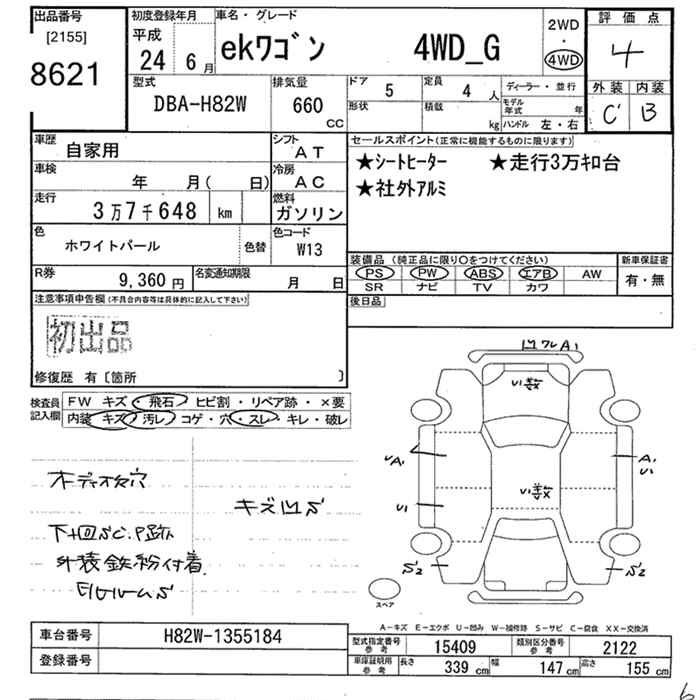 出品番号
[2155]
8621
初度登録年月
平成
24 6月
車名・グレード
ekワゴン 4WD_G
2WD
・
4WD
評価点
4
外装 内装
C' B
型式
DBA-H82W
排気量
660
CC
ドア 5
定員 4人
形状
積載 kg
ディーラー・並行
モデル年式 年
ハンドル 左・右
車歴 自家用
シフト AT
車検 年 月( 日)
冷房 AC
走行 3万7千648 km
燃料 ガソリン
色 ホワイトパール
色替
色コード W13
R券 9,360円
名変通知期限 月 日
セールスポイント(正常に機能するものに限ります)
★シートヒーター ★走行3万キロ台
★社外アルミ
装備品 (純正品に限り○をつけてください)
PS PW ABS エアB AW
SR ナビ TV カワ
新車保証書
有・無
後日品
注意事項申告欄(不具合内容等は具体的に記入して下さい)
初出品
修復歴 有〔箇所 〕
検査員記入欄
FW キズ・飛石・ヒビ割・リペア跡・×要
内装 キズ・汚レ・コゲ・穴・スレ・キレ・破レ
キズ凹S
外装鉄粉付着
凹ワレA1
U1数
U1数
UA1
U1
A1
U1
S2
S2
スペア
A-キズ E-エクボ U-凹み W-補修跡 S-サビ C-腐食 XX-交換済
車台番号 H82W-1355184
登録番号
型式指定番号 参考 15409
類別区分番号 参考 2122
車庫証明用 参考 長さ 339cm 幅 147cm 高さ 155cm